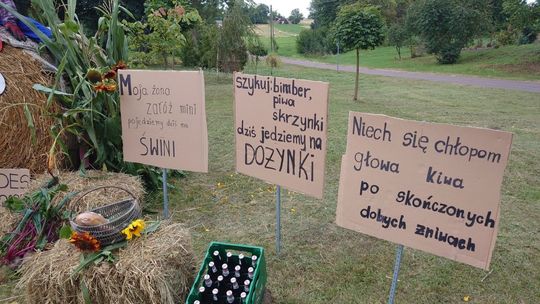 DES
Moja żono
załóż mini
pojedziemy dziś na
ŚWINI
szykuj bimber,
piwa
skrzynki
dziś jedziemy na
DOŻYNKI
Niech się chłopom
głowa kiwa
po skończonych
dobych żniwach